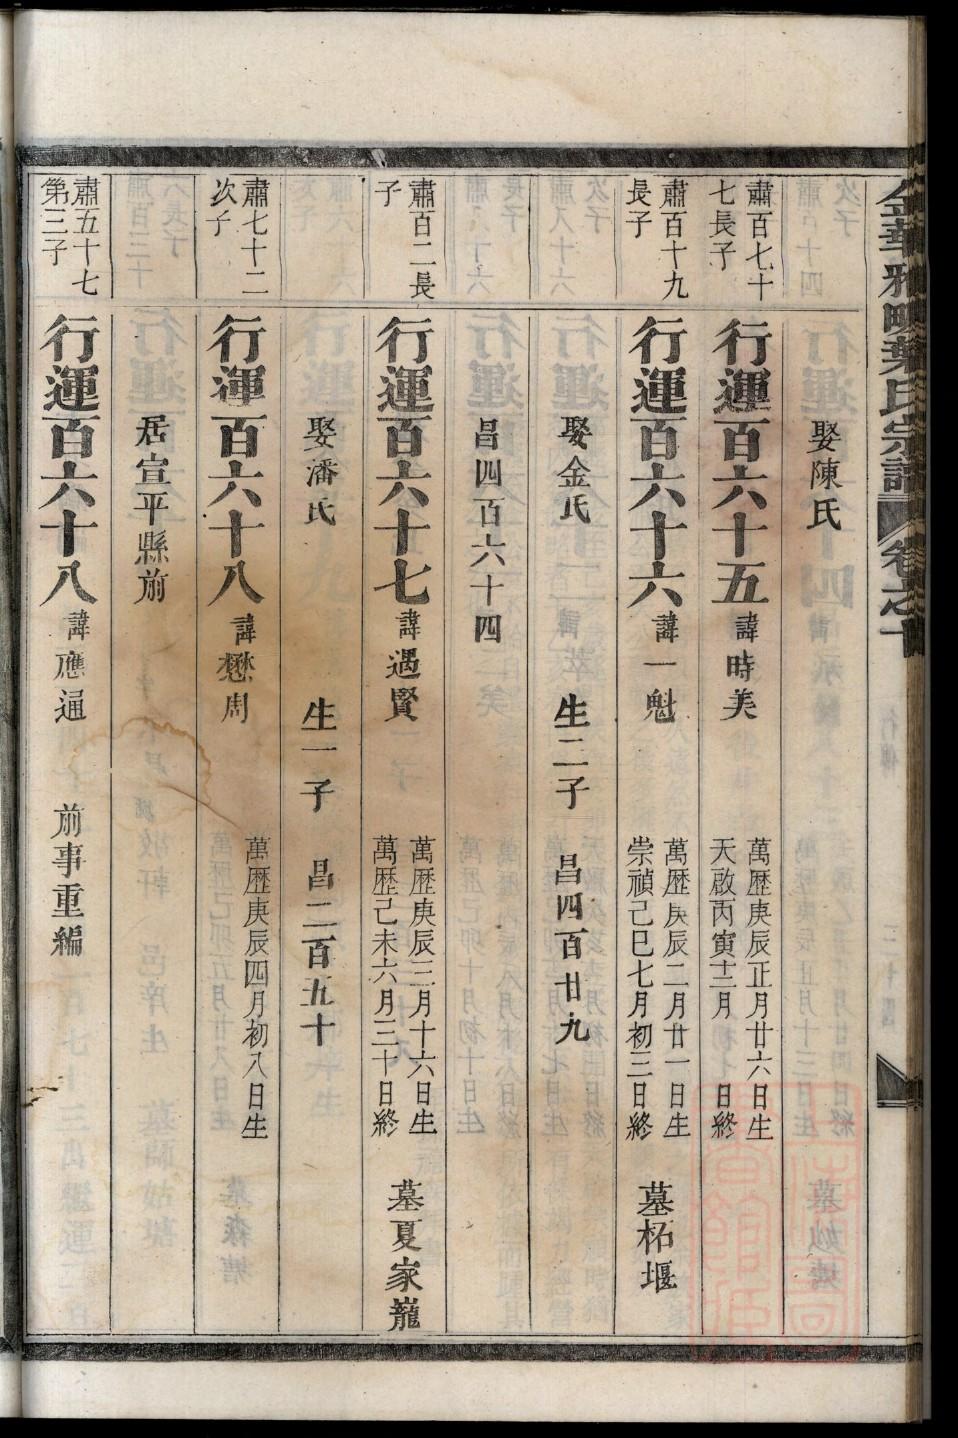 金華雅畈葉氏宗譜 卷之十
娶陳氏
肅百七十七長子
行運百六十五 諱時美 萬歷庚辰正月廿六日生 天啟丙寅十二月 日終
肅百十九長子
行運百六十六 諱一魁 萬歷庚辰二月廿一日生 崇禎己巳七月初三日終 墓柘堰
娶金氏 生二子 昌四百廿九
昌四百六十四
肅百二長子
行運百六十七 諱遇賢 萬歷庚辰三月十六日生 萬歷己未六月三十日終 墓夏家巃
娶潘氏 生一子 昌二百五十
肅七十二次子
行運百六十八 諱懋周 萬歷庚辰四月初八日生
居宣平縣前
肅五十七第三子
行運百六十八 諱應通 前事重編